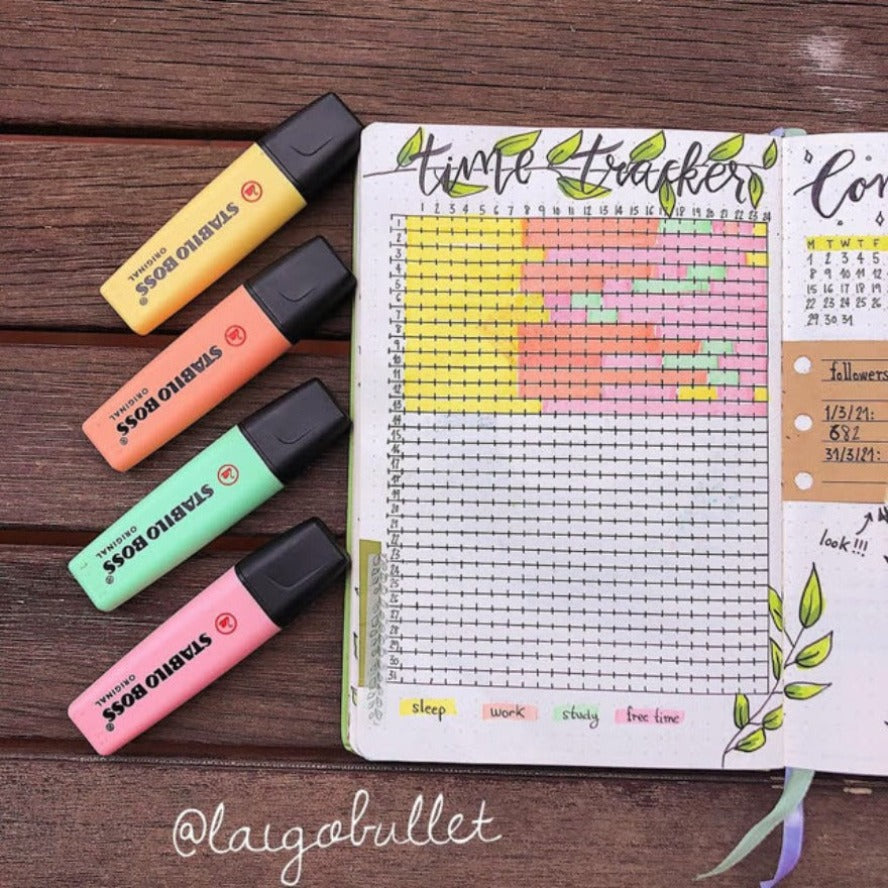 time tracker
1 2 3 4 5 6 7 8 9 10 11 12 13 14 15 16 17 18 19 20 21 22 23 24
1
2
3
4
5
6
7
8
9
10
11
12
13
14
15
16
17
18
19
20
21
22
23
24
25
26
27
28
29
30
31
sleep work study free time
M T W T F
1 2 3 4 5
8 9 10 11 12
15 16 17 18 19
22 23 24 25 26
29 30 31
followers
1/3/21:
682
31/3/21:
look!!!
STABILO BOSS
ORIGINAL
STABILO BOSS
ORIGINAL
STABILO BOSS
ORIGINAL
STABILO BOSS
ORIGINAL
@laigobullet